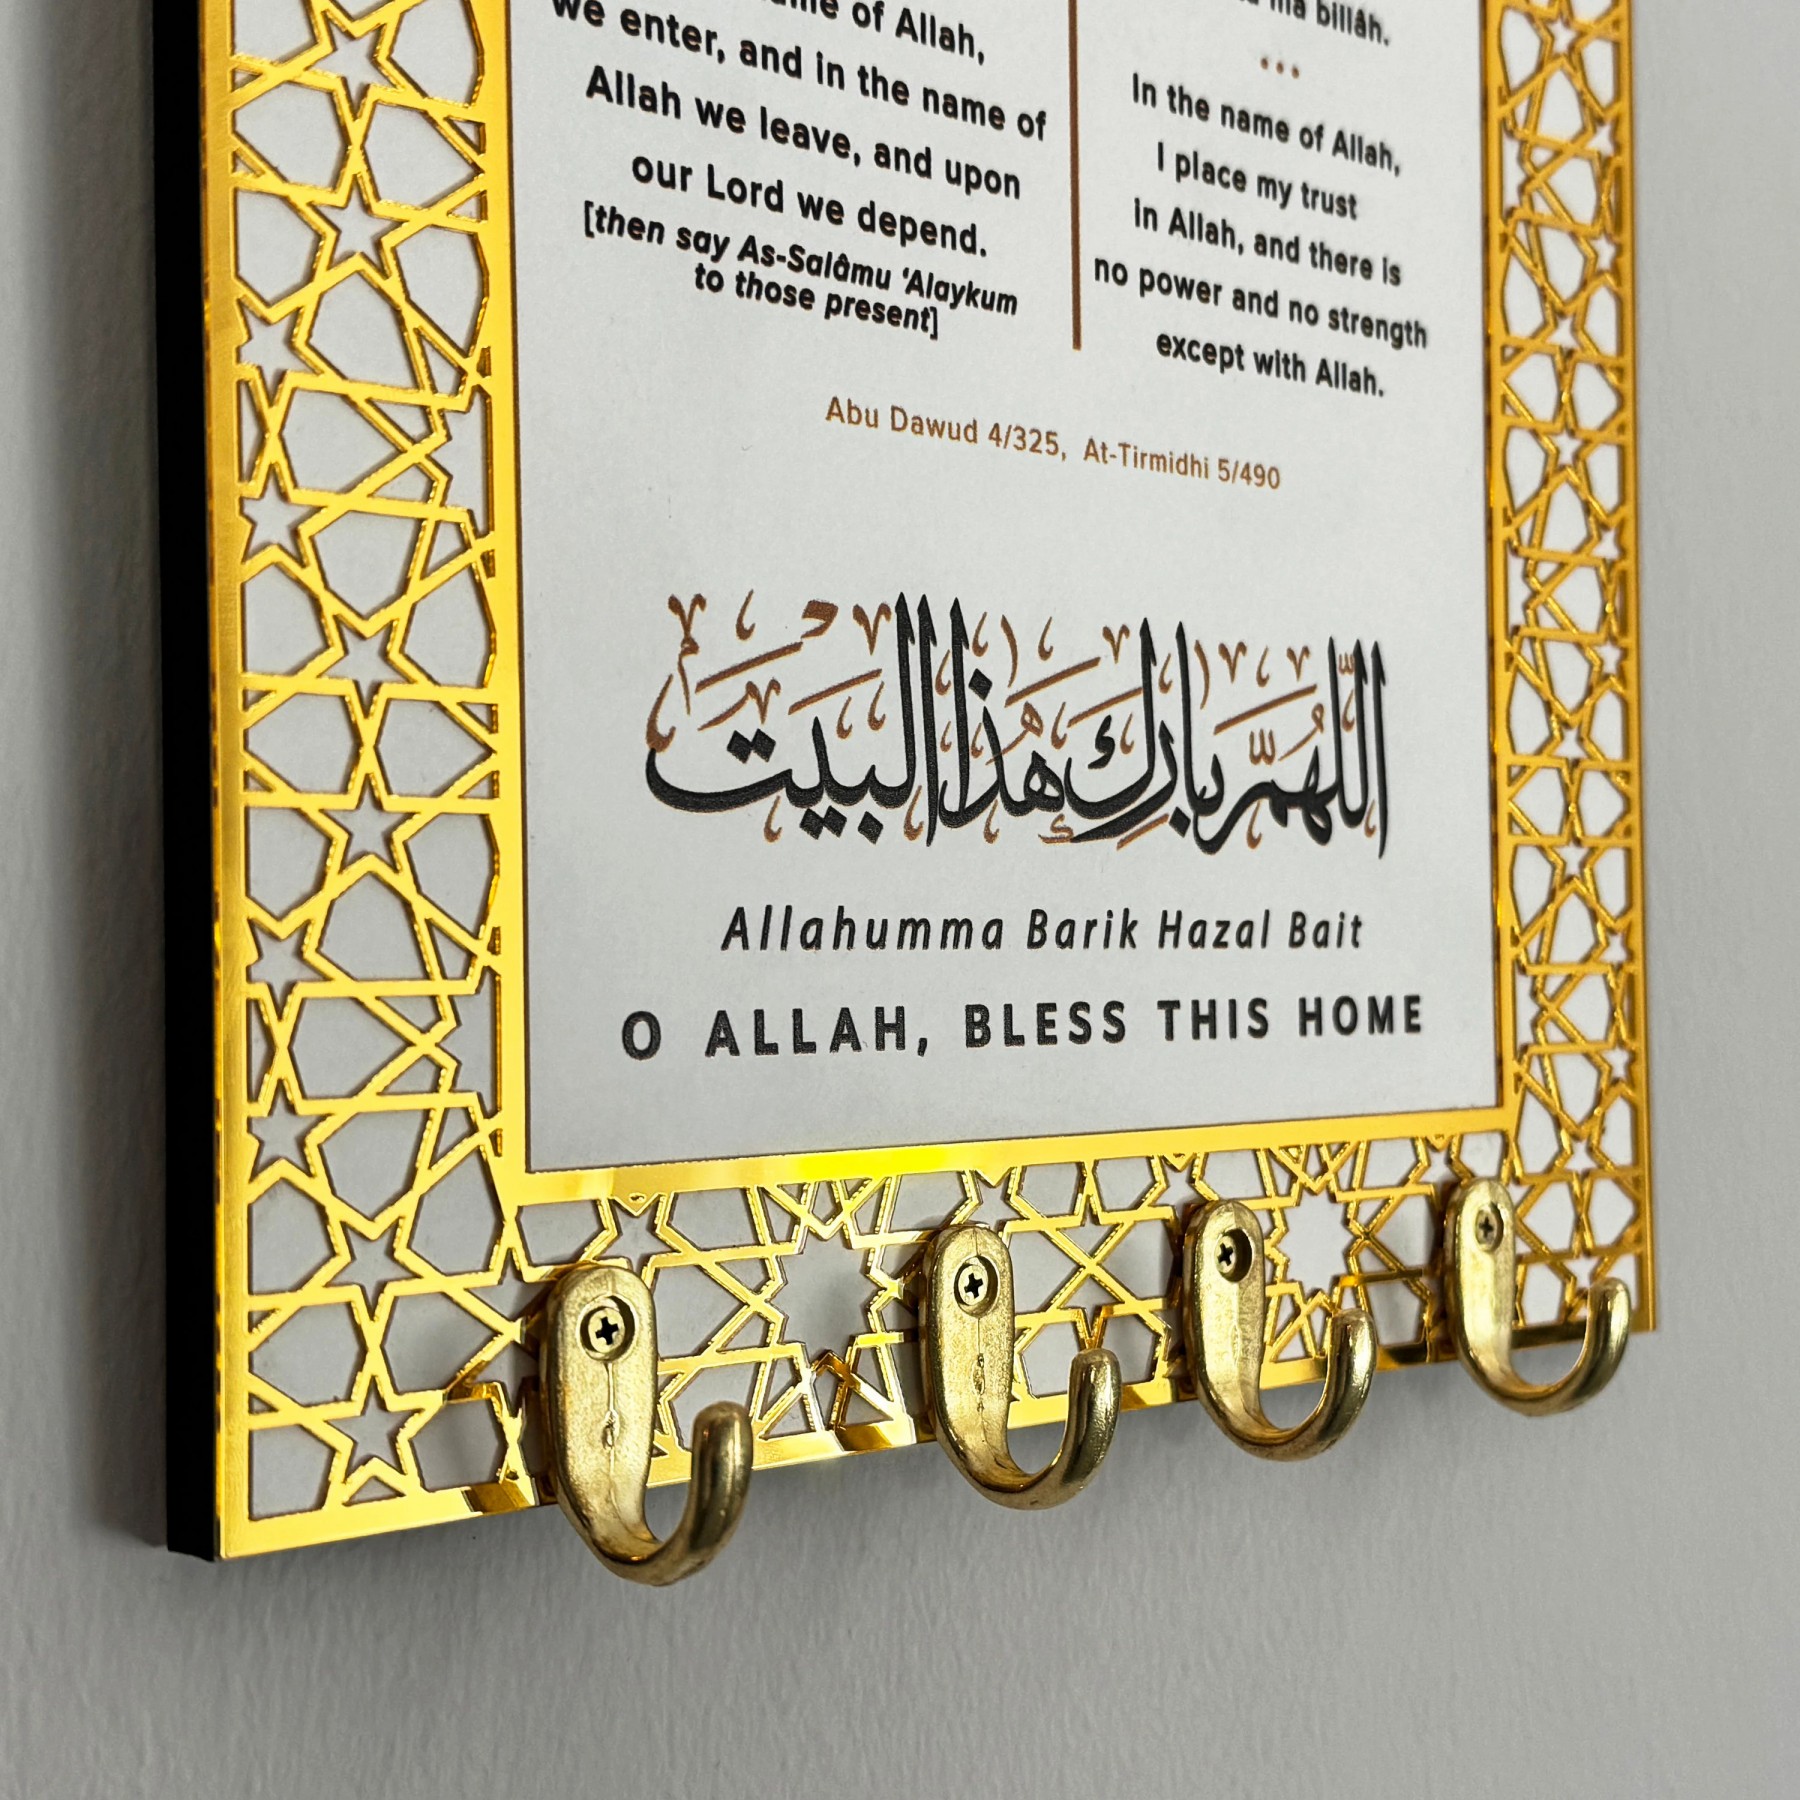 name of Allah,
we enter, and in the name of
Allah we leave, and upon
our Lord we depend.
[then say As-Salâmu ‘Alaykum
to those present]
billâh.
•••
In the name of Allah,
I place my trust
in Allah, and there is
no power and no strength
except with Allah.
Abu Dawud 4/325, At-Tirmidhi 5/490
اللّهمّ بارك هذا البيت
Allahumma Barik Hazal Bait
O ALLAH, BLESS THIS HOME